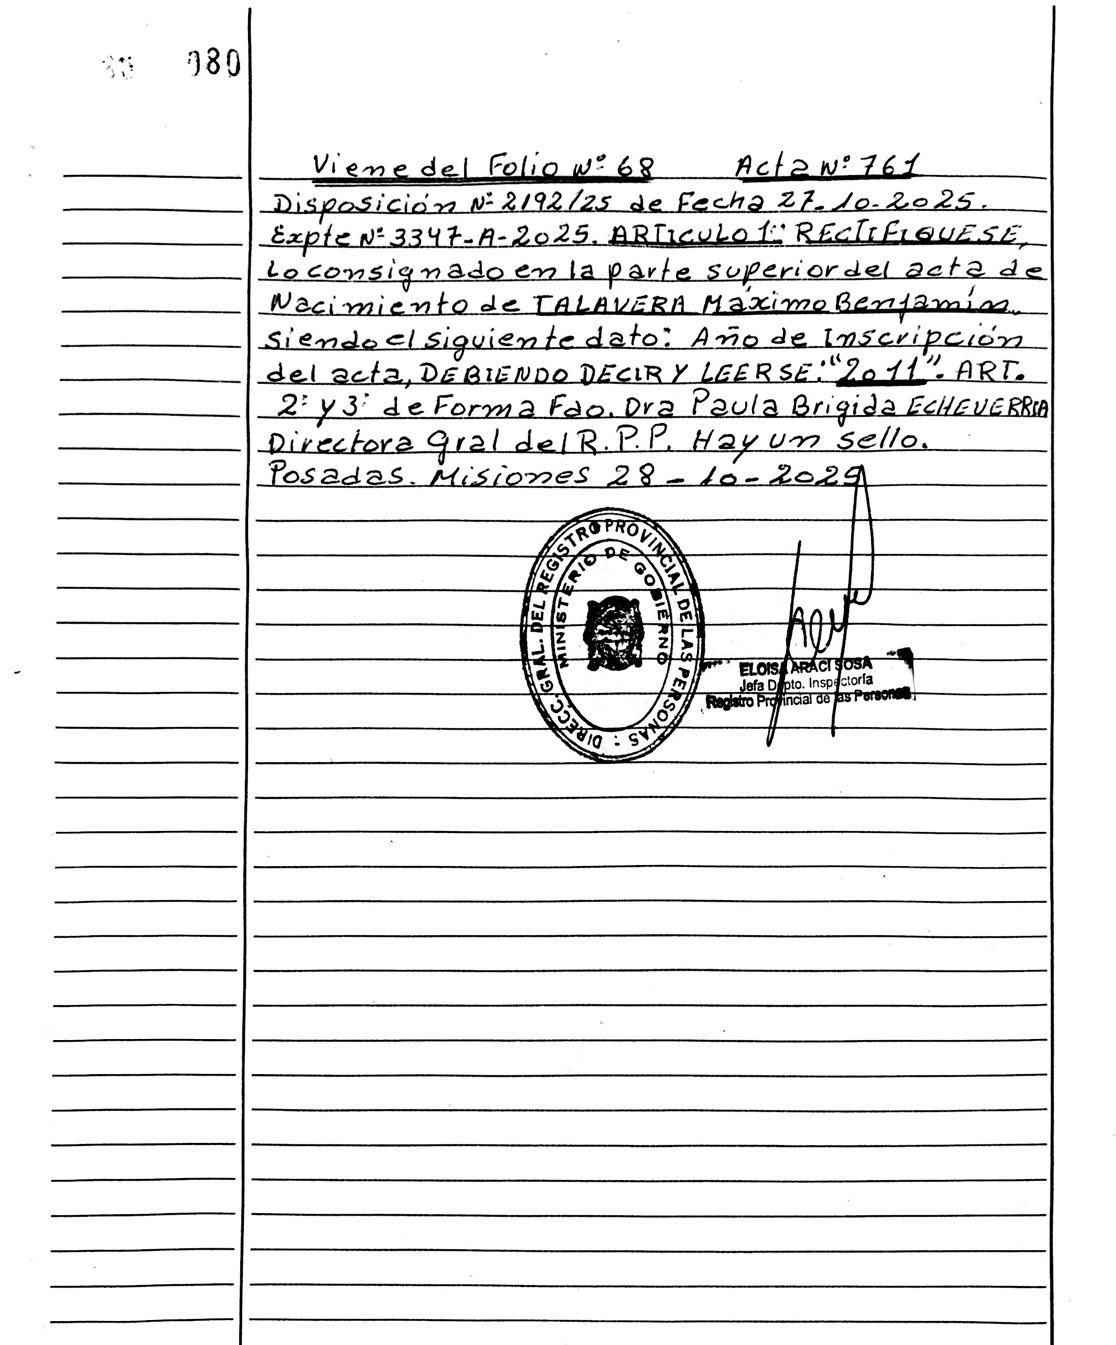 080
Viene del Folio Nº 68 Acta Nº 761
Disposición Nº 2192/25 de Fecha 27-10-2025.
Expte Nº 3347-A-2025. ARTICULO 1º: RECTIFIQUESE,
Lo consignado en la parte superior del acta de
Nacimiento de TALAVERA Máximo Benjamín
siendo el siguiente dato: Año de Inscripción
del acta, DEBIENDO DECIR Y LEERSE: "2011". ART.
2º y 3º de Forma Fdo. Dra Paula Brigida ECHEVERRIA
Directora Gral del R.P.P. Hay un sello.
Posadas. Misiones 28-10-2025
DIRECC. GRAL. DEL REGISTRO PROVINCIAL DE LAS PERSONAS
MINISTERIO DE GOBIERNO
ELOISA ARACI SOSA
Jefa Dpto. Inspectoría
Registro Provincial de las Personas